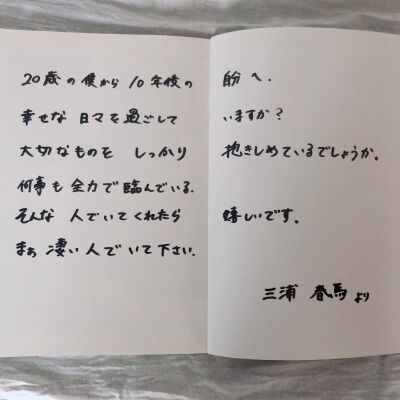 20歳の僕から 10年後の 自分へ.
幸せな 日々を過ごして いますか?
大切なものを しっかり 抱きしめているでしょうか。
何事も全力で臨んでいる.
そんな 人でいてくれたら 嬉しいです。
まぁ 凄い人でいて下さい.
三浦 春馬 より